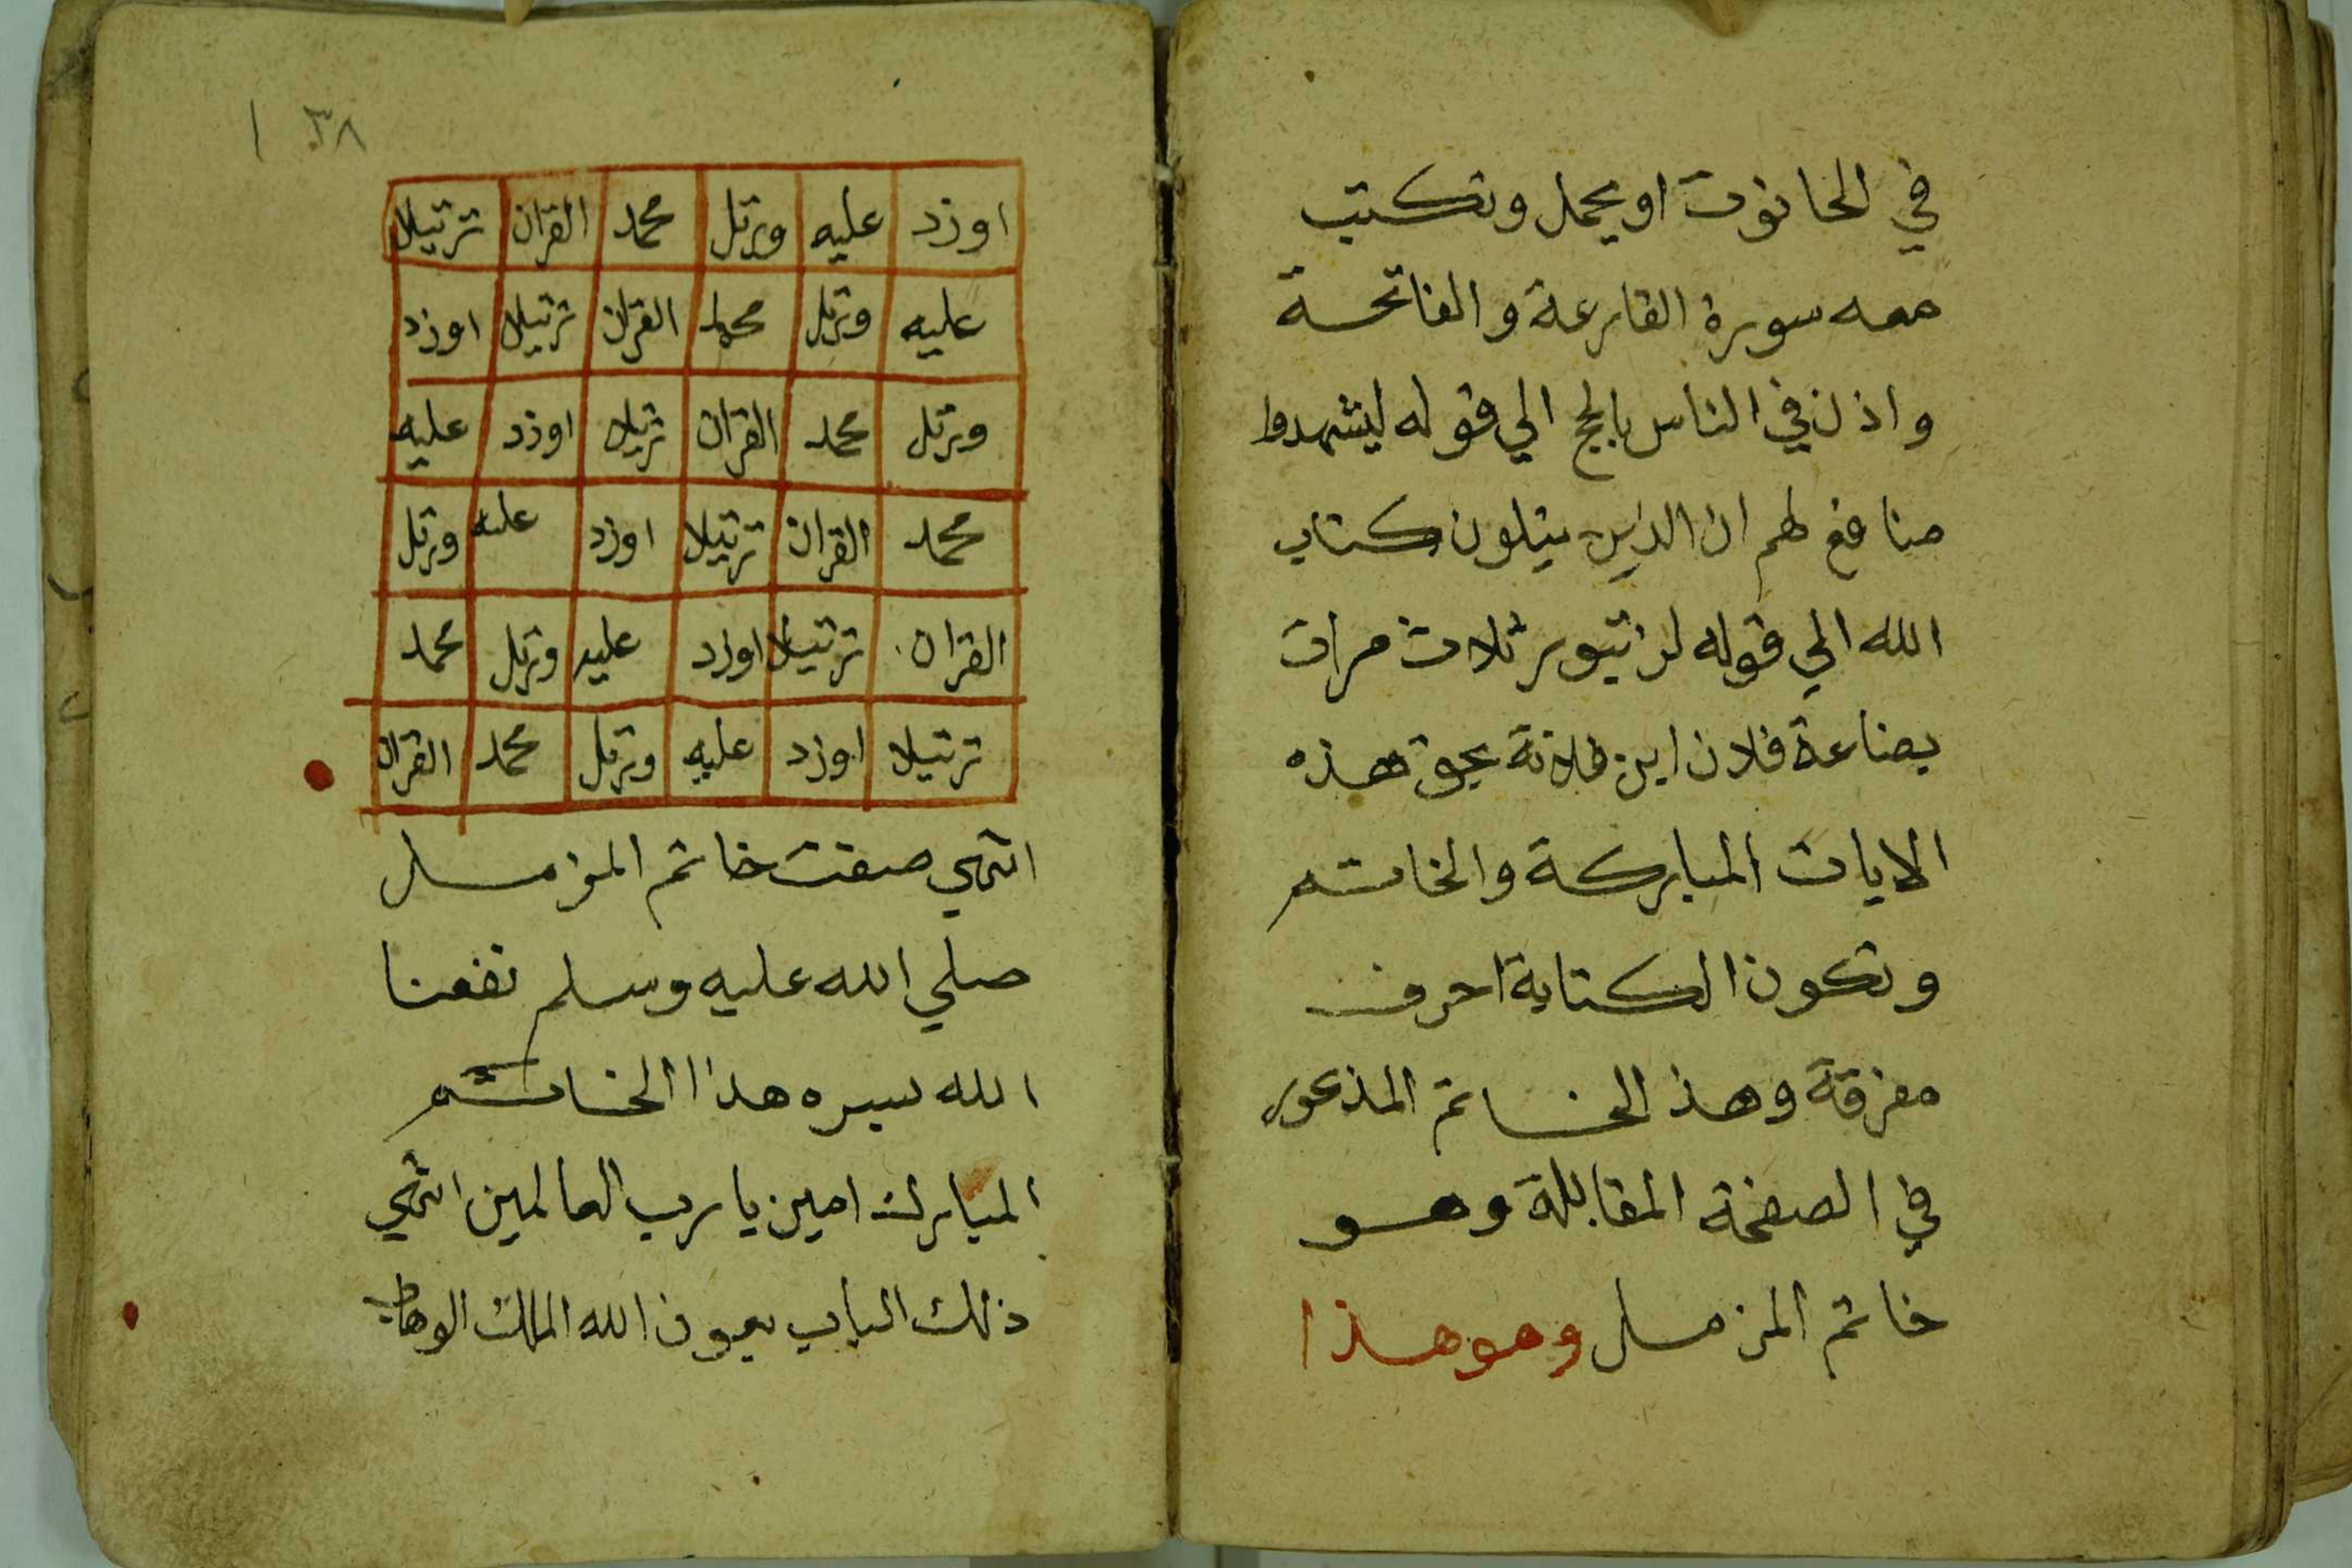 في الحانوت او يحمل وتكتب
معه سورة القارعة والفاتحة
واذن في الناس بالحج الي قوله ليشهدوا
منافع لهم ان الذين يتلون كتاب
الله الي قوله لن تبور ثلاث مرات
بضاعة فلان ابن فلانة بحق هذه
الايات المباركة والخاتم
وتكون الكتابة احرف
مفرقة وهذ الخاتم المذكور
في الصفحة المقابلة وهو
خاتم المزمل وهو هذا
٣٨ ١
اوزد عليه ورتل محمد القران ترتيلا
عليه ورتل محمد القران ترتيلا اوزد
ورتل محمد القران ترتيلا اوزد عليه
محمد القران ترتيلا اوزد عليه ورتل
القران ترتيلا اوزد عليه ورتل محمد
ترتيلا اوزد عليه ورتل محمد القران
انتهي صفت خاتم المزمل
صلي الله عليه وسلم نفعنا
الله بسره هذا الخاتم
المبارك امين يا رب العالمين انتهي
ذلك الباب بعون الله الملك الوهاب